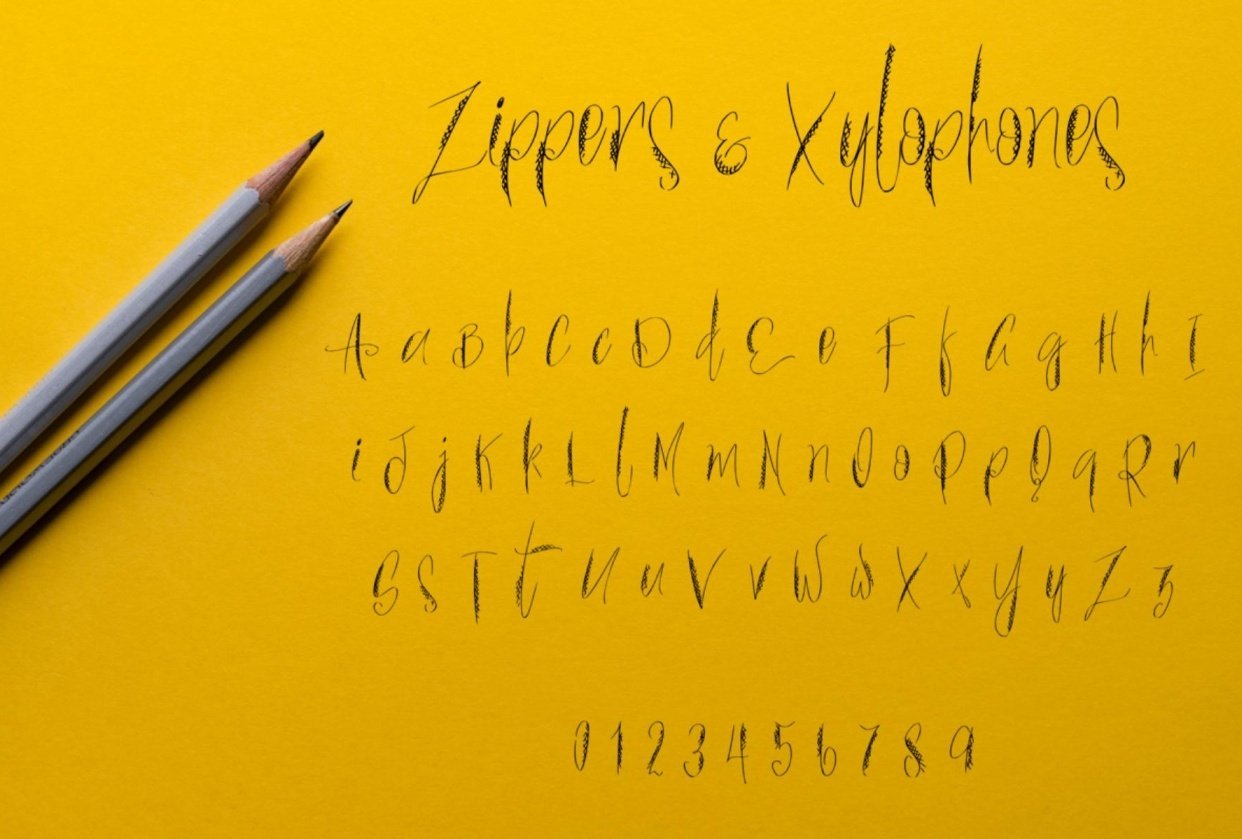 Zippers & Xylophones
A a B b C c D d E e F f G g H h I
i J j K k L l M m N n O o P p Q q R r
S s T t U u V v W w X x Y y Z z
0 1 2 3 4 5 6 7 8 9